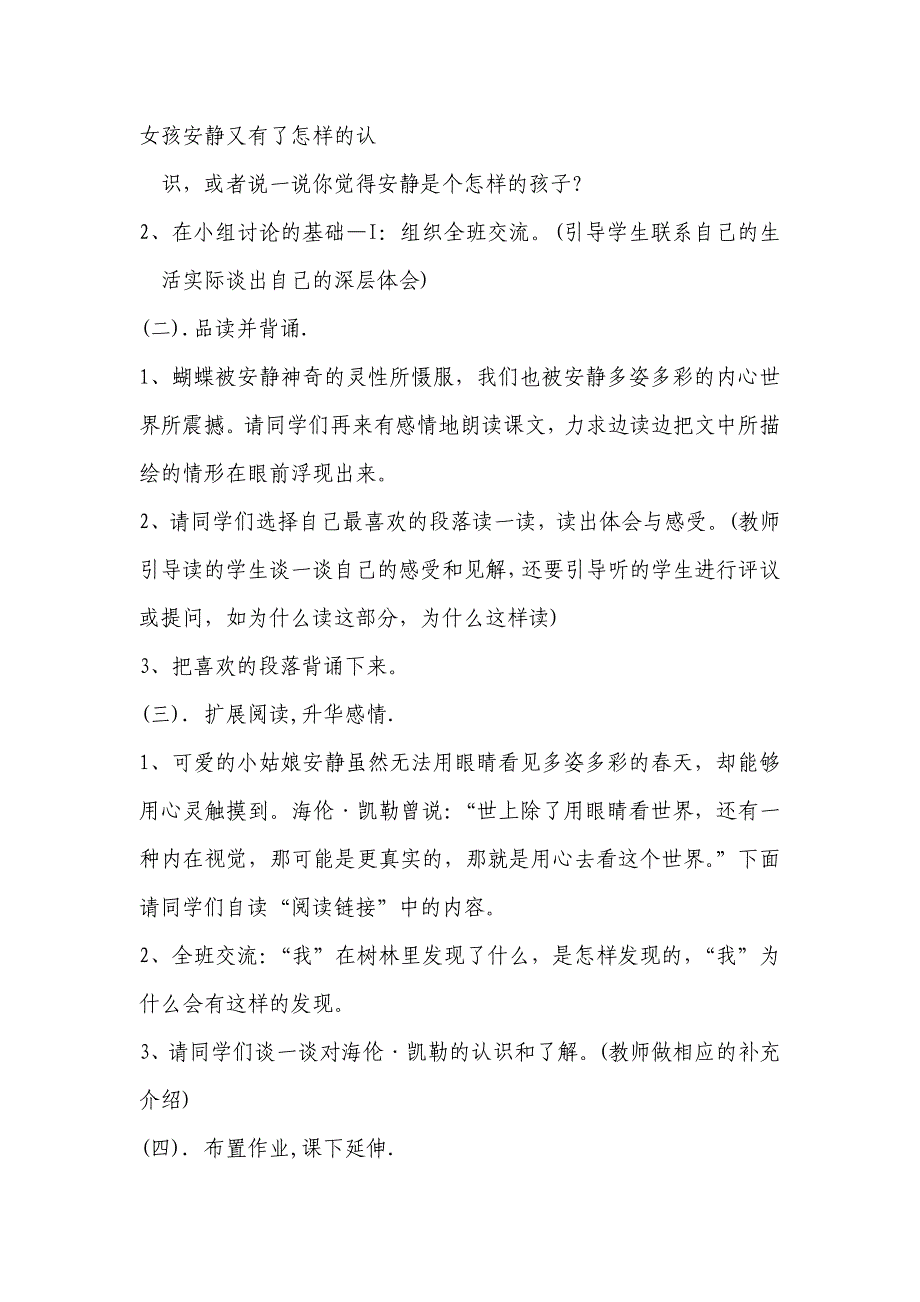 女孩安静又有了怎样的认
识，或者说一说你觉得安静是个怎样的孩子？
2、在小组讨论的基础—I：组织全班交流。(引导学生联系自己的生
活实际谈出自己的深层体会)
(二).品读并背诵.
1、蝴蝶被安静神奇的灵性所慑服，我们也被安静多姿多彩的内心世
界所震撼。请同学们再来有感情地朗读课文，力求边读边把文中所描
绘的情形在眼前浮现出来。
2、请同学们选择自己最喜欢的段落读一读，读出体会与感受。(教师
引导读的学生谈一谈自己的感受和见解，还要引导听的学生进行评议
或提问，如为什么读这部分，为什么这样读)
3、把喜欢的段落背诵下来。
(三). 扩展阅读,升华感情.
1、可爱的小姑娘安静虽然无法用眼睛看见多姿多彩的春天，却能够
用心灵触摸到。海伦·凯勒曾说：“世上除了用眼睛看世界，还有一
种内在视觉，那可能是更真实的，那就是用心去看这个世界。”下面
请同学们自读“阅读链接”中的内容。
2、全班交流：“我”在树林里发现了什么，是怎样发现的，“我”为
什么会有这样的发现。
3、请同学们谈一谈对海伦·凯勒的认识和了解。(教师做相应的补充
介绍)
(四). 布置作业,课下延伸.